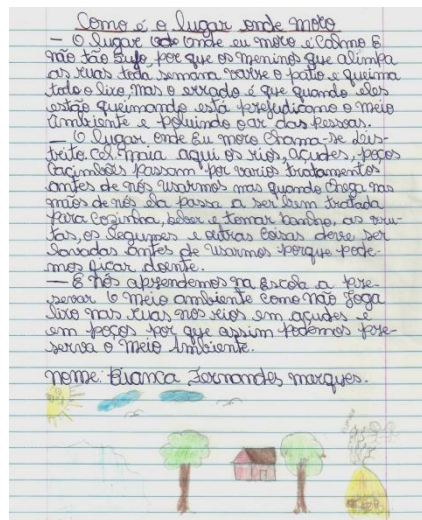 Como é o lugar onde moro
— O lugar onde eu moro é Calmo E
não tão Sujo, por que os meninos que alimpa
as ruas toda semana varre o patio e queima
todo o lixo, mas o errado é que quando eles
estão queimando está prejudicamo o meio
Ambiente e Poluindo o ar das pessoas.
— O lugar onde Eu moro Chama-se Dis-
trito Cel. maia aqui os rios, açudes, poços
Caçimbois passam por varios tratamentos
antes de nós usarmos mas quando Chega nas
mios de nós Ela passa a ser bem tratada
para Cozinha, beber e tomar banho, as vru-
tas, os legumes e outras Coisas deve ser
lavadas antes de usarmos porque pode-
mos ficar doente.
— E nós aprendemos na Escola a pre-
servar o meio ambiente como não Joga
lixo nas ruas nos rios em açudes e
em poços por que assim podemos pre-
serva o Meio Ambiente.
nome: Bianca Fernandes marques.